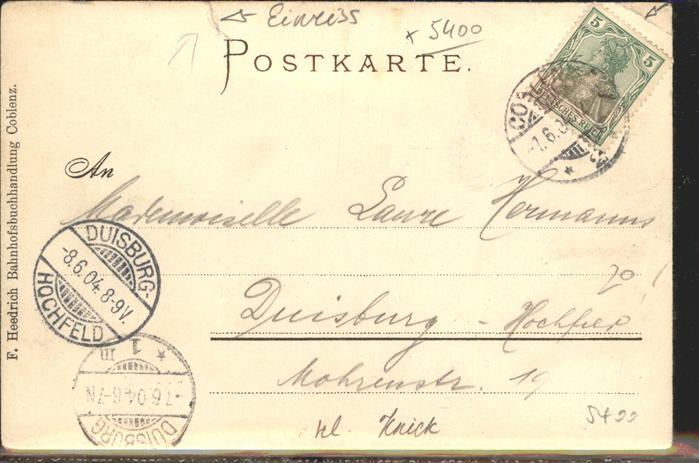 Einriss
× 5400
POSTKARTE.
5 5
DEUTSCHES REICH
-7.6.
F. Heedrich Bahnhofsbuchhandlung Coblenz.
An
Mademoiselle Laure Hermanns
DUISBURG-
-8.6.04.8-9V.
HOCHFELD
Duisburg - Hochfeld
1
-7.6.04.6-7N
DUISBURG
Mohrenstr. 19
kl. Knick